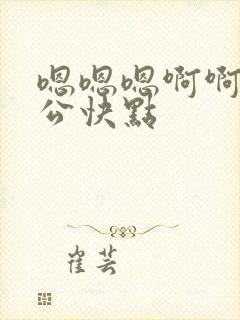 嗯嗯嗯啊啊
公快點
崔芸